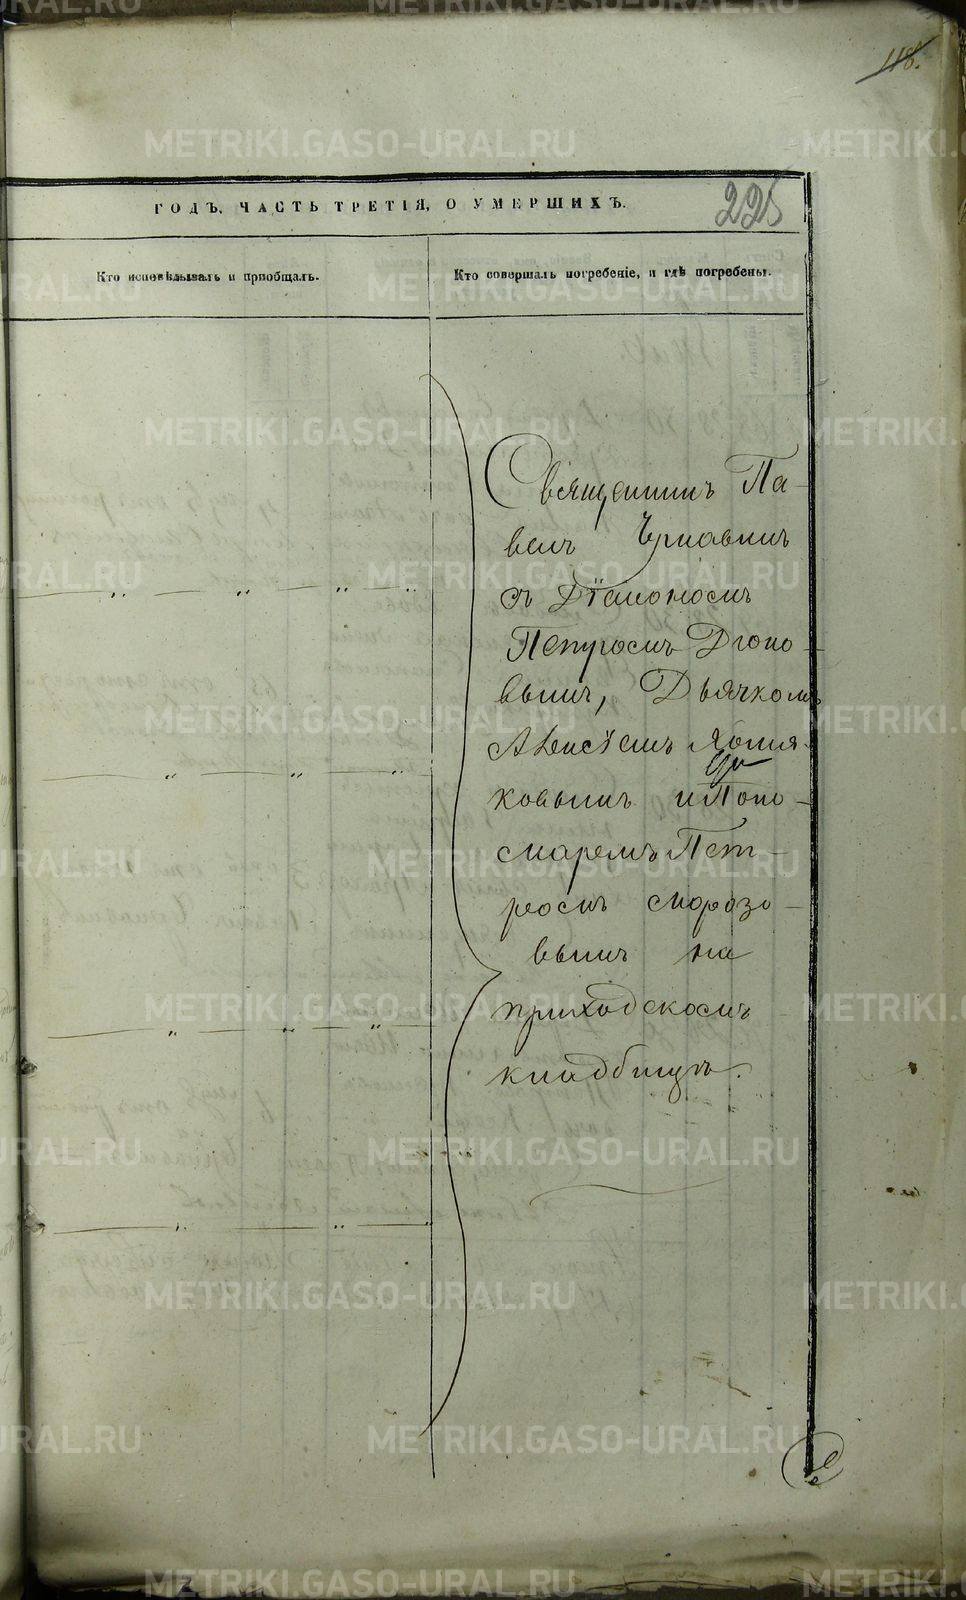 118.
ГОДЪ, ЧАСТЬ ТРЕТІЯ, О УМЕРШИХЪ.
225
Кто исповѣдывалъ и пріобщалъ.
Кто совершалъ погребеніе, и гдѣ погребены.
Священникъ Па-
велъ Чернавинъ
съ Діакономъ
Петромъ
вымъ, Дьячкомъ
Алексѣемъ
ковымъ и Поно-
маремъ Пет-
ромъ Морозо-
вымъ на
приходскомъ
кладбищѣ.
METRIKI.GASO-URAL.RU